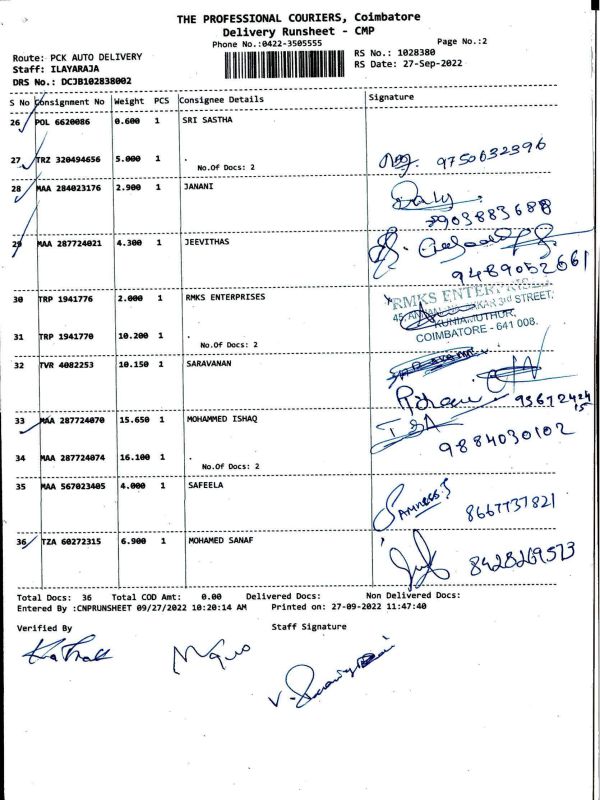 THE PROFESSIONAL COURIERS, Coimbatore
Delivery Runsheet - CMP
Phone No.:0422-3505555
Page No.:2
Route: PCK AUTO DELIVERY
Staff: ILAYARAJA
DRS No.: DCJB102838002
RS No.: 1028380
RS Date: 27-Sep-2022
S No Consignment No Weight PCS Consignee Details Signature
26 POL 6620086 0.600 1 SRI SASTHA
27 TRZ 320494656 5.000 1 .
No.Of Docs: 2
9750632396
28 MAA 284023176 2.900 1 JANANI
7903883688
29 MAA 287724021 4.300 1 JEEVITHAS
9489052661
30 TRP 1941776 2.000 1 RMKS ENTERPRISES
RMKS ENTERPRISES
3rd STREET,
KUNIAMUTHUR,
COIMBATORE - 641 008.
31 TRP 1941770 10.200 1 .
No.Of Docs: 2
32 TVR 4082253 10.150 1 SARAVANAN
33 MAA 287724070 15.650 1 MOHAMMED ISHAQ
9884030102
34 MAA 287724074 16.100 1 .
No.Of Docs: 2
35 MAA 567023405 4.000 1 SAFEELA
8667737821
36 TZA 60272315 6.900 1 MOHAMED SANAF
8428269573
Total Docs: 36 Total COD Amt: 0.00 Delivered Docs: Non Delivered Docs:
Entered By :CNPRUNSHEET 09/27/2022 10:20:14 AM Printed on: 27-09-2022 11:47:40
Verified By Staff Signature